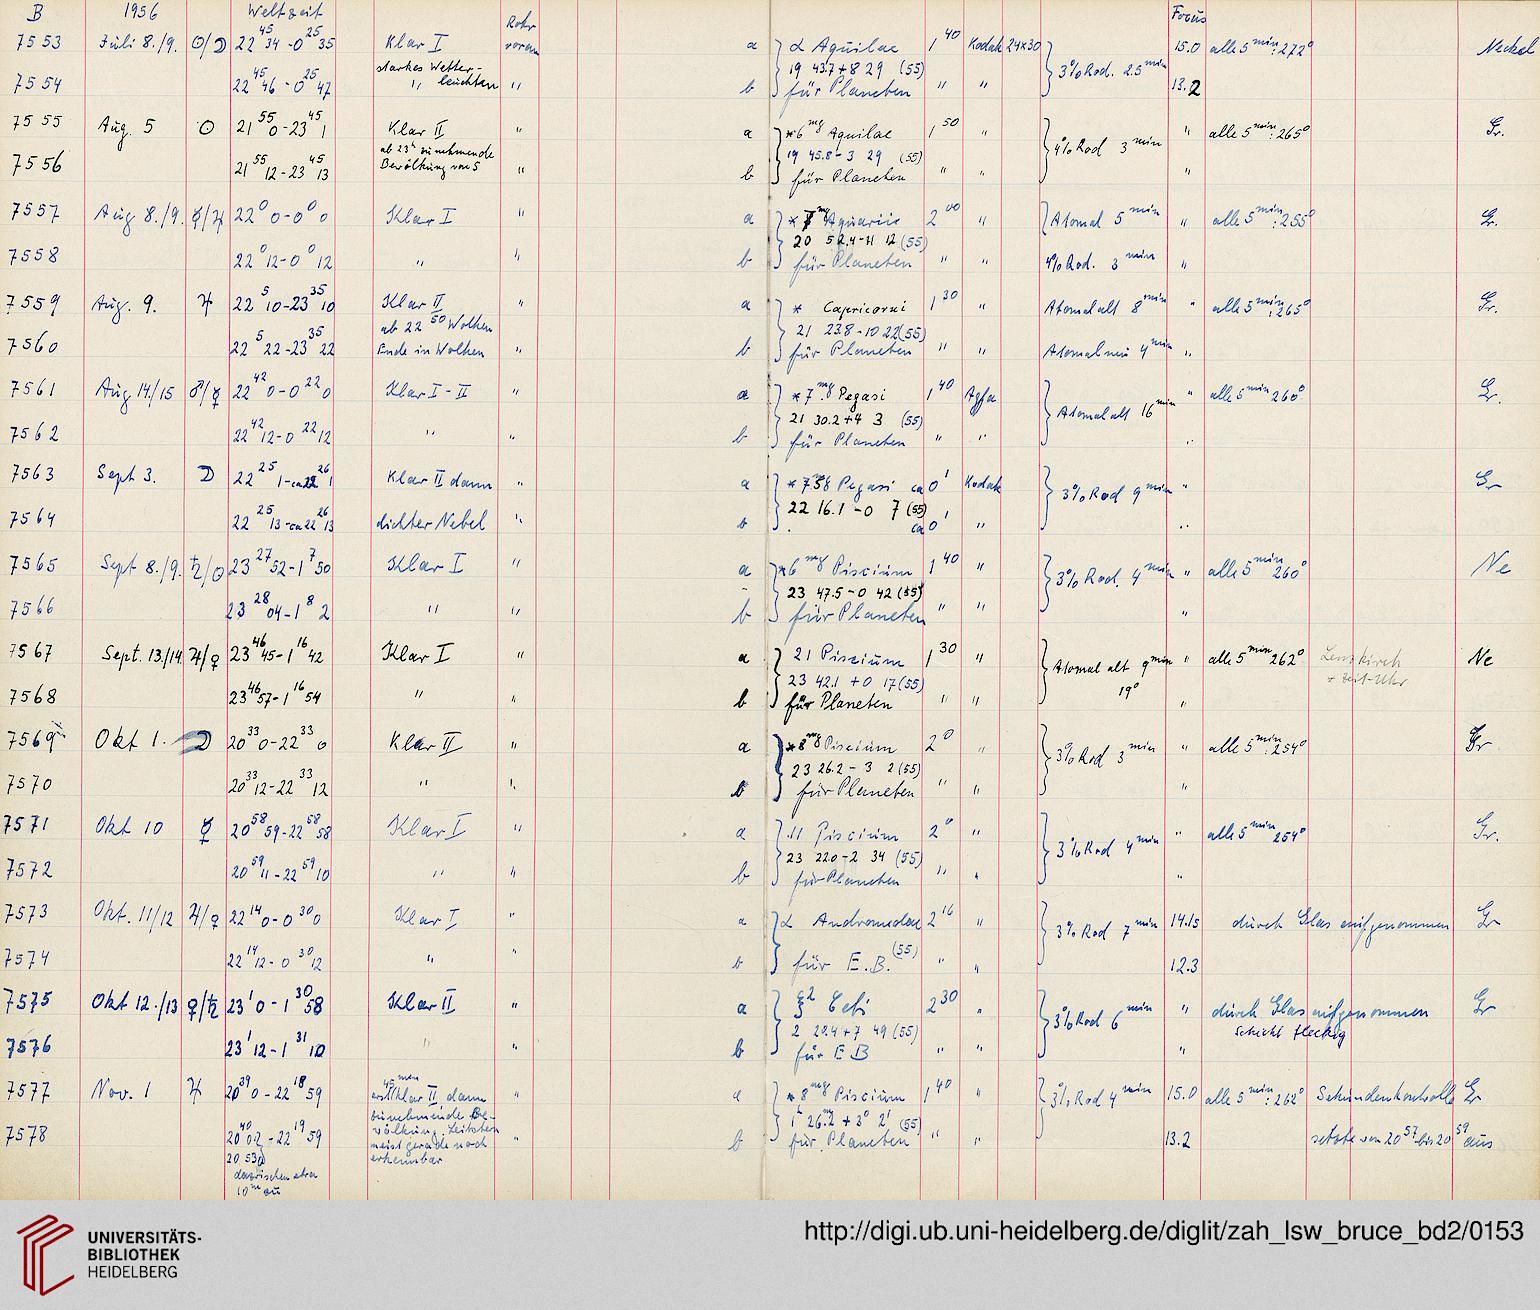 B 1956 Weltzeit Rohr Focus
7553 Juli 8./9. ☉/☽ 22 45 34 - 0 25 35 Klar I voran a α Aquilae 1 40 Kodak 24x30 3% Rod. 2.5 min 15.0 alle 5 min: 272° Neckel
starkes Wetter- 19 43.7 + 8 29 (55)
7554 22 45 46 - 0 25 47 " leuchten " b für Planeten " " 13.2
7555 Aug. 5 ☉ 21 55 0 - 23 45 1 Klar II " a *6 mg Aquilae 1 50 " 4% Rod 3 min " alle 5 min: 265° Gr.
ab 23 h zunehmende 19 45.8 - 3 29 (55)
7556 21 55 12 - 23 45 13 Bewölkung von S " b für Planeten " " "
7557 Aug 8./9. ☿/♃ 22 0 0 - 0 0 0 Klar I " a * mg Aquarii 2 00 " Atomal 5 min " alle 5 min: 255° Gr.
20 52.4 - 11 12 (55)
7558 22 0 12 - 0 0 12 " " b für Planeten " " 4% Rod. 3 min "
7559 Aug. 9. ♃ 22 5 10 - 23 35 10 Klar II " a * Capricorni 1 30 " Atomal alt 8 min " alle 5 min: 265° Gr.
ab 22 50 Wolken 21 23.8 - 10 22 (55)
7560 22 5 22 - 23 35 22 Ende in Wolken " b für Planeten " " Atomal neu 4 min "
7561 Aug 14./15 ♂/☿ 22 42 0 - 0 22 0 Klar I - II " a *7 mg Pegasi 1 40 Agfa Atomal alt 16 min " alle 5 min 260° Gr.
21 30.2 + 4 3 (55)
7562 22 42 12 - 0 22 12 " " b für Planeten " " "
7563 Sept 3. ☽ 22 25 1 - ca 22 26 1 Klar II dann " a *7.58 Pegasi ca 0 1 Kodak 3% Rod 9 min " Gr
22 16.1 - 0 7 (55)
7564 22 25 13 - ca 22 26 13 dichter Nebel " b ca 0 1 " "
7565 Sept 8./9. ♄/☉ 23 27 52 - 1 7 50 Klar I " a *6 mg Piscium 1 40 " 3% Rod. 4 min " alle 5 min 260° Ne
23 47.5 - 0 42 (55)
7566 23 28 04 - 1 8 2 " " b für Planeten " " "
7567 Sept. 13./14. ♃/♀ 23 46 45 - 1 16 42 Klar I " a 21 Piscium 1 30 " Atomal alt 9 min " alle 5 min 262° Lenzkirch Ne
23 42.1 + 0 17 (55) 19° + Zeit-Uhr
7568 23 46 57 - 1 16 54 " " b für Planeten " " "
7569 Okt 1. ☽ 20 33 0 - 22 33 0 Klar II " a *8 mg Piscium 2 0 " 3% Rod 3 min " alle 5 min: 254° Gr
23 26.2 - 3 2 (55)
7570 20 33 12 - 22 33 12 " " b für Planeten " " "
7571 Okt 10 ☿ 20 58 59 - 22 58 58 Klar I " a 11 Piscium 2 0 " 3% Rod 4 min " alle 5 min 254° Gr.
23 22.0 - 2 34 (55)
7572 20 59 11 - 22 59 10 " " b für Planeten " " "
7573 Okt. 11/12 ♃/♀ 22 14 0 - 0 30 0 Klar I " a α Andromedae 2 16 " 3% Rod 7 min 14.15 durch Glas aufgenommen Gr
(55)
7574 22 14 12 - 0 30 12 " " b für E.B. " " 12.3
7575 Okt 12./13 ♀/♄ 23 1 0 - 1 30 58 Klar II " a ξ2 Ceti 2 30 " 3% Rod 6 min " durch Glas aufgenommen Gr
2 29.4 + 7 49 (55) Schicht fleckig
7576 23 1 12 - 1 31 10 " " b für E B " " "
7577 Nov. 1 ♃ 20 39 0 - 22 18 59 erst 45 men Klar II dann " a *8 mg Piscium 1 40 " 3% Rod 4 min 15.0 alle 5 min: 262° Sekundenkontrolle Gr
zunehmende Be- 1 h 26.2 m + 2° 2' (55)
7578 20 40 02 - 22 19 59 wölkung. Leitstern " b für Planeten " " 13.2 setzte von 20 57 bis 20 59 aus
20 53 meist gerade noch
dazwischen etwa erkennbar
10 m zu
UNIVERSITÄTS-
BIBLIOTHEK
HEIDELBERG
http://digi.ub.uni-heidelberg.de/diglit/zah_lsw_bruce_bd2/0153